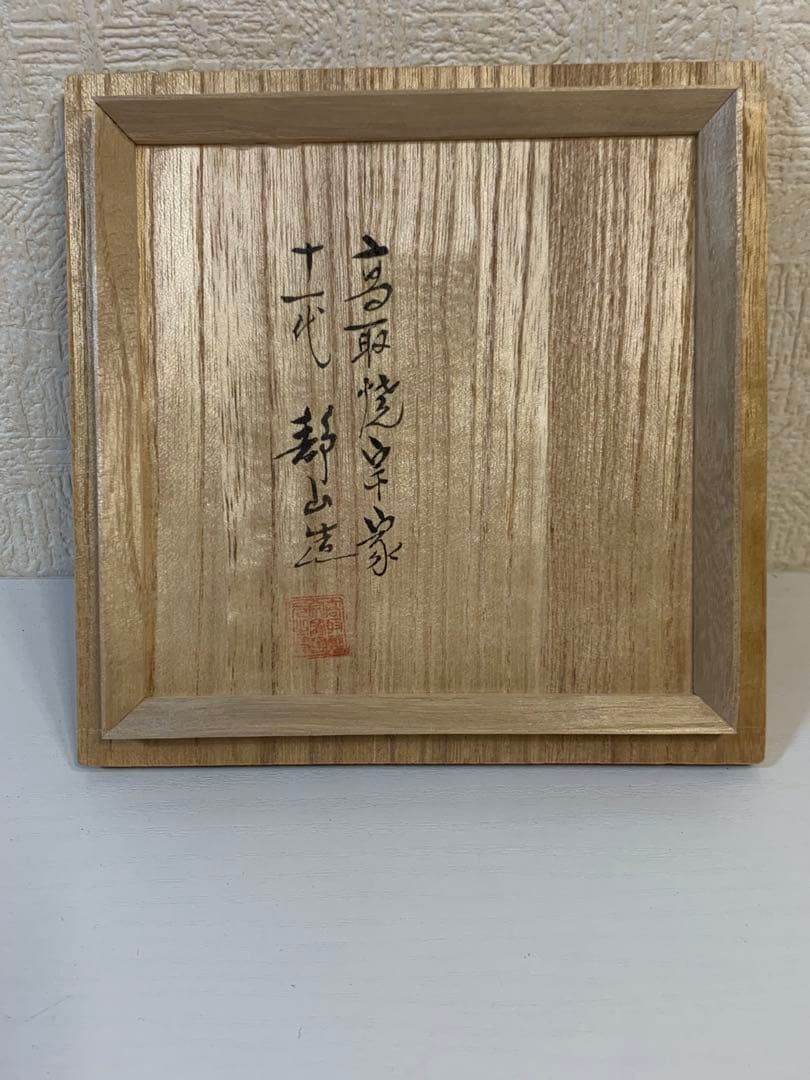 高取焼宗家
十一代 静山造